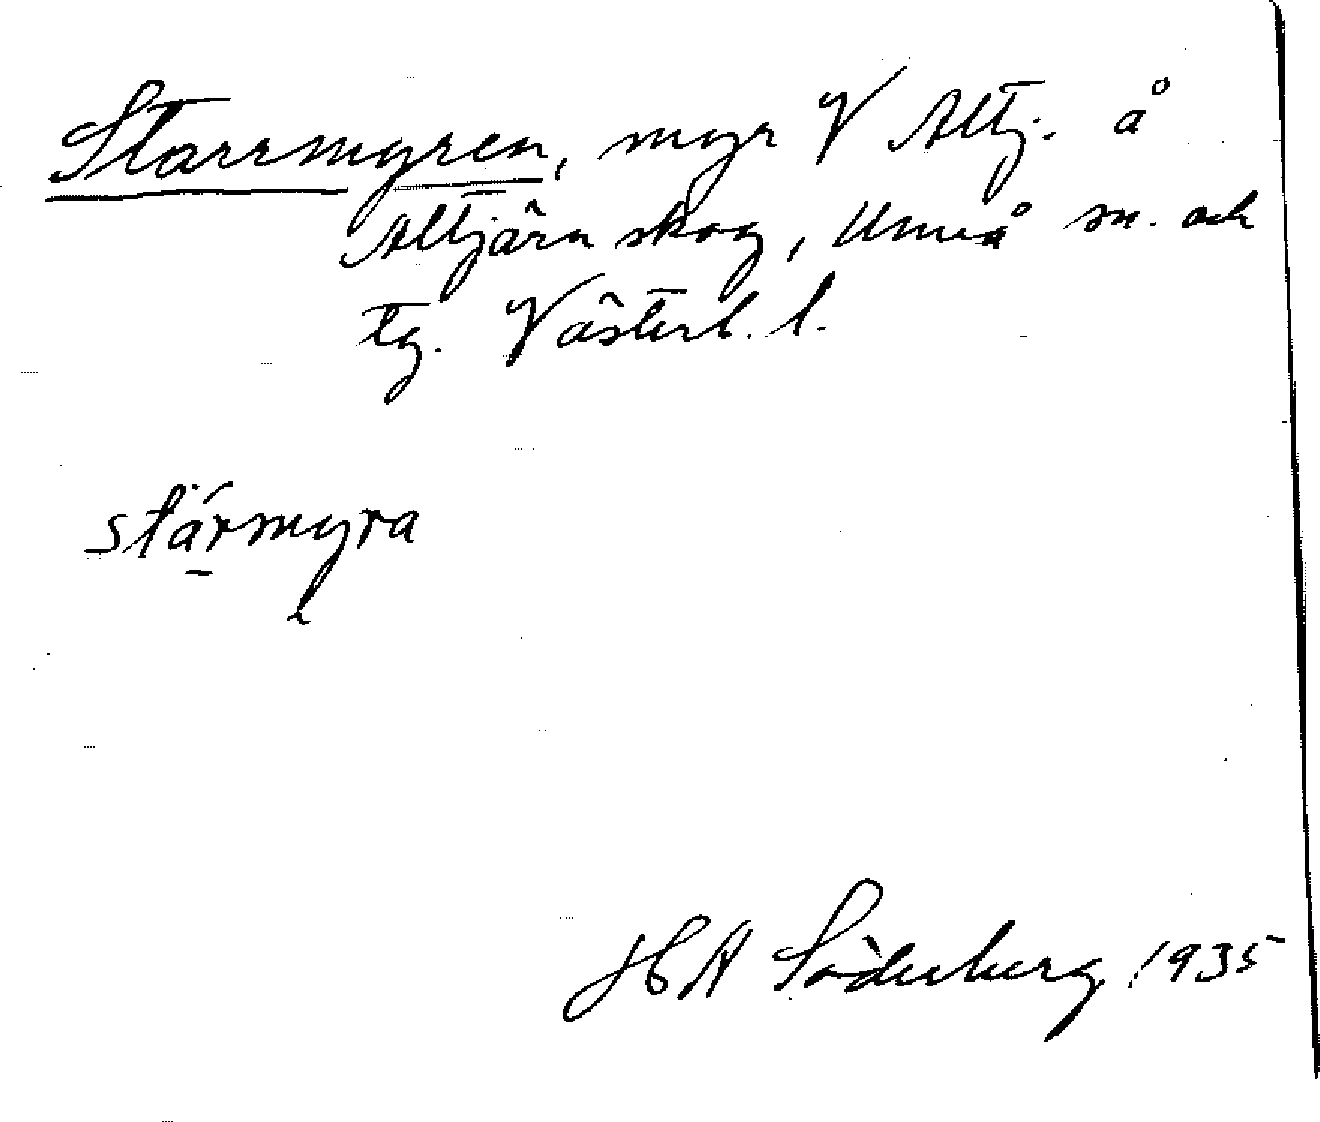 Starrmyren, myr V Altj. å
Altjärn skog, Umeå sn. och
tg. Västerb. l.
stármyra
H A Söderberg 1935